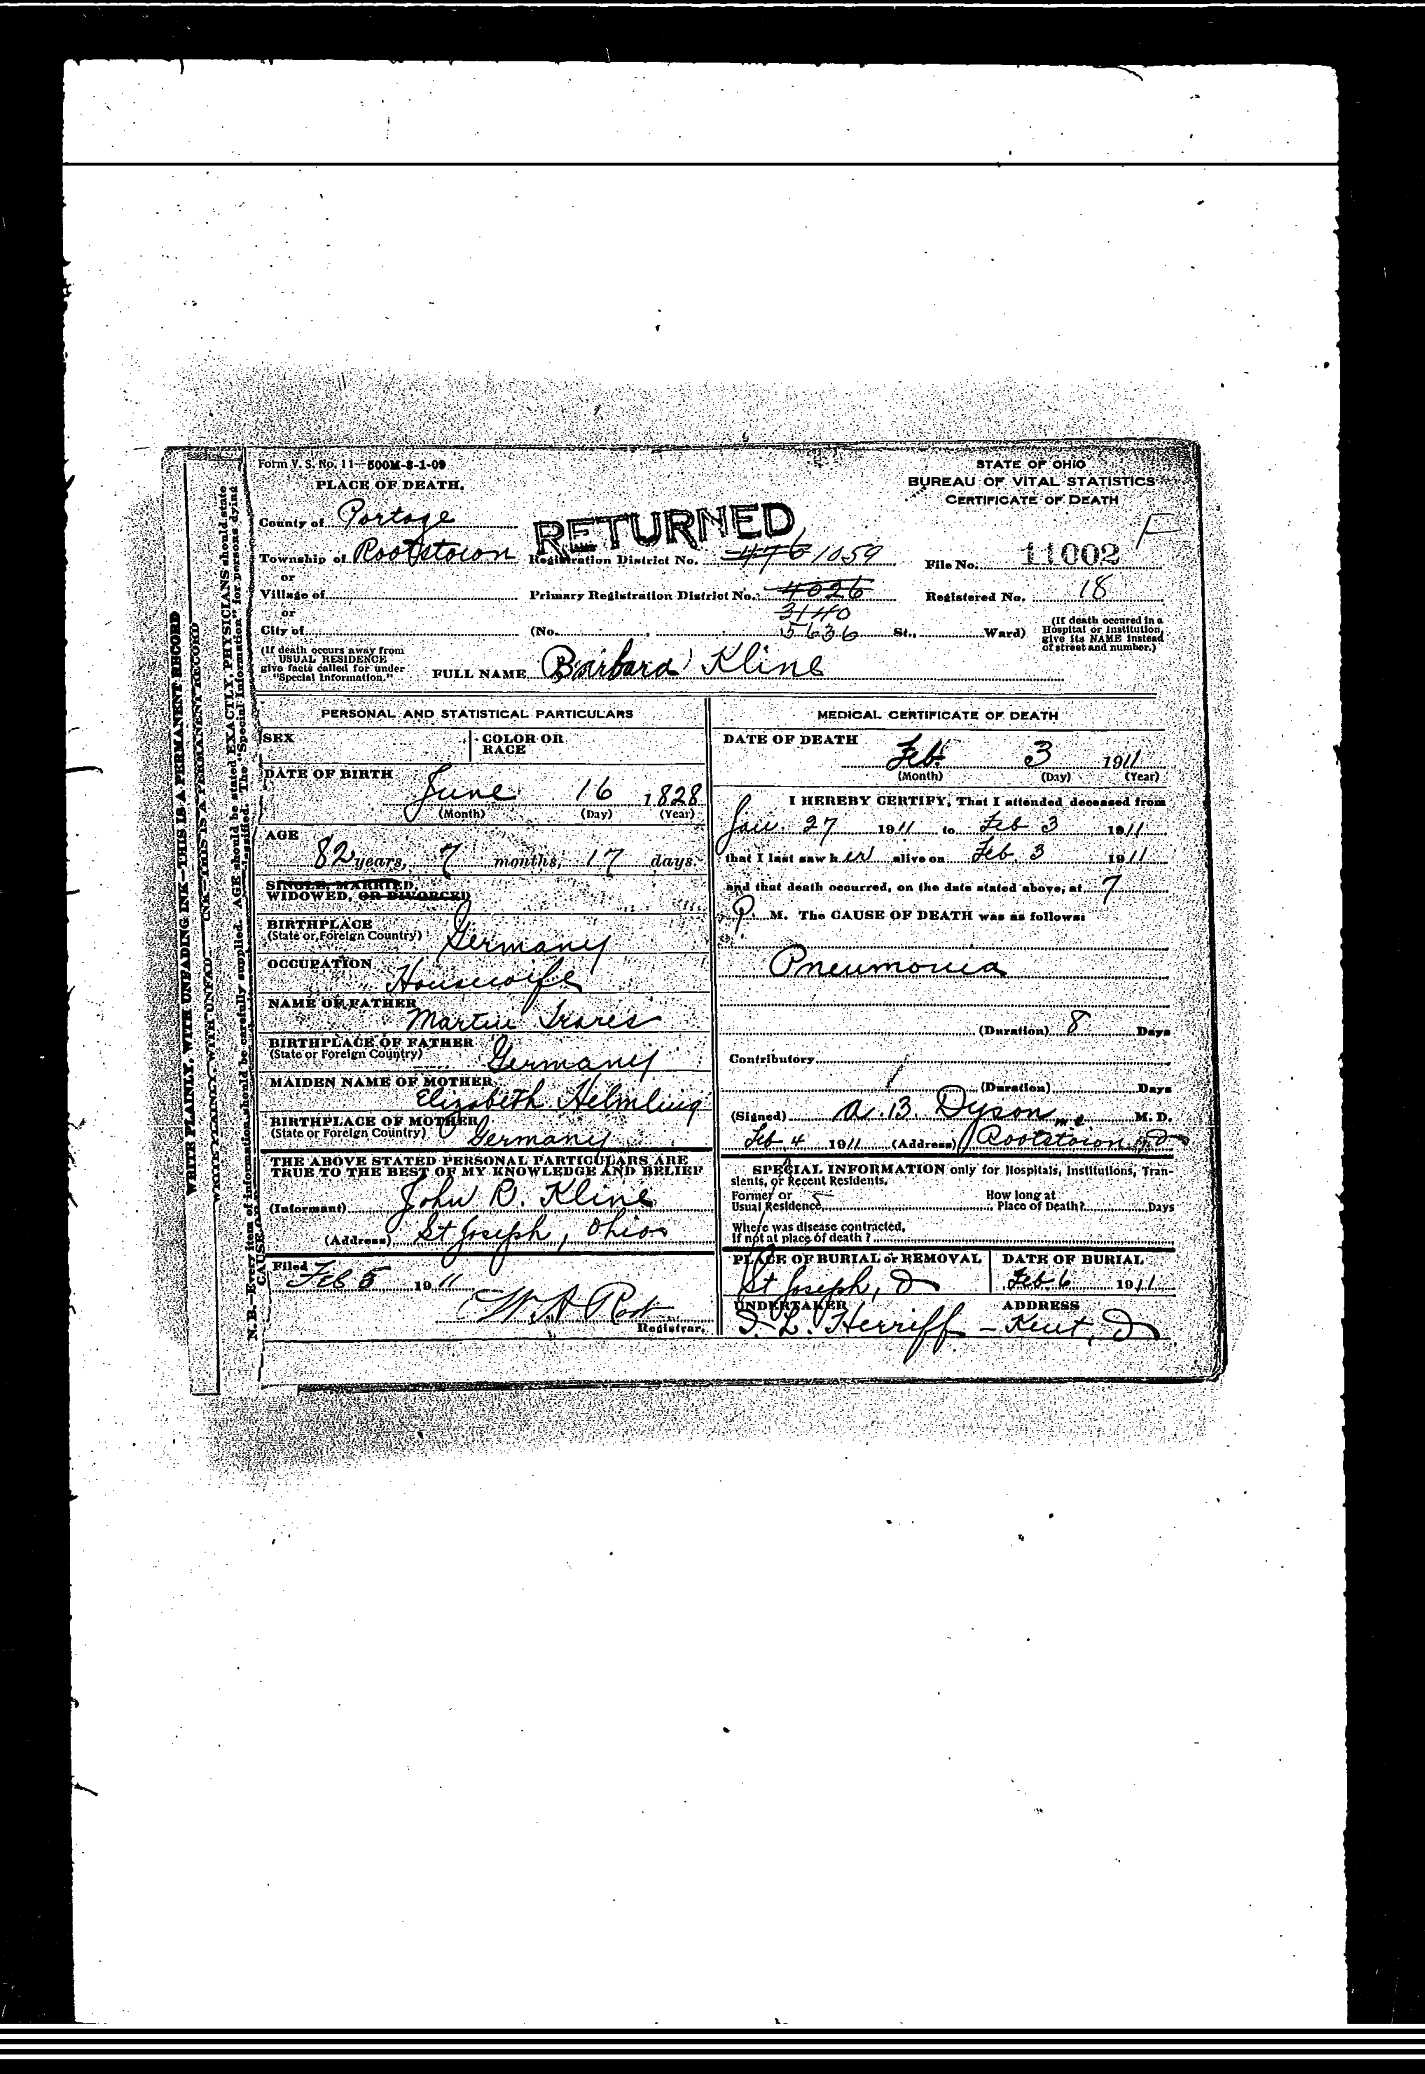 Form V. S. No. 11—500M-8-1-09
PLACE OF DEATH.
STATE OF OHIO
BUREAU OF VITAL STATISTICS
CERTIFICATE OF DEATH
County of Portage
RETURNED
F
Township of Rootstown Registration District No. 476 1059 File No. 11002
or
Village of Primary Registration District No. 4026 Registered No. 18
or
3140
City of (No. 5636 St., Ward)
(If death occured in a
Hospital or Institution,
give its NAME instead
of street and number.)
(If death occurs away from
USUAL RESIDENCE
give facts called for under
"Special Information.")
FULL NAME Barbara Kline
PERSONAL AND STATISTICAL PARTICULARS
SEX COLOR OR
RACE
DATE OF BIRTH June 16 1828
(Month) (Day) (Year)
AGE
82 years, 7 months, 17 days.
SINGLE, MARRIED,
WIDOWED, OR DIVORCED
BIRTHPLACE
(State or Foreign Country) Germany
OCCUPATION Housewife
NAME OF FATHER Martin Trares
BIRTHPLACE OF FATHER
(State or Foreign Country) Germany
MAIDEN NAME OF MOTHER
Elizabeth Helmling
BIRTHPLACE OF MOTHER
(State or Foreign Country) Germany
THE ABOVE STATED PERSONAL PARTICULARS ARE
TRUE TO THE BEST OF MY KNOWLEDGE AND BELIEF
(Informant) John B. Kline
(Address) St Joseph, Ohio
Filed Feb 5 1911
W A Root
Registrar.
MEDICAL CERTIFICATE OF DEATH
DATE OF DEATH Feb. 3 1911
(Month) (Day) (Year)
I HEREBY CERTIFY, That I attended deceased from
Jan. 27 1911 to Feb 3 1911
that I last saw her alive on Feb 3 1911
and that death occurred, on the date stated above, at 7
P. M. The CAUSE OF DEATH was as follows:
Pneumonia
(Duration) 8 Days
Contributory
(Duration) Days
(Signed) A. B. Dyson M. D.
Feb 4 1911 (Address) Rootstown O
SPECIAL INFORMATION only for Hospitals, Institutions, Tran-
sients, or Recent Residents.
Former or How long at
Usual Residence Place of Death? Days
Where was disease contracted,
If not at place of death?
PLACE OF BURIAL or REMOVAL DATE OF BURIAL
St Joseph, O Feb 6 1911
UNDERTAKER ADDRESS
I. L. Herriff – Kent, O
WRITE PLAINLY, WITH UNFADING INK—THIS IS A PERMANENT RECORD
N. B.—Every item of information should be carefully supplied. AGE should be stated EXACTLY. PHYSICIANS should state